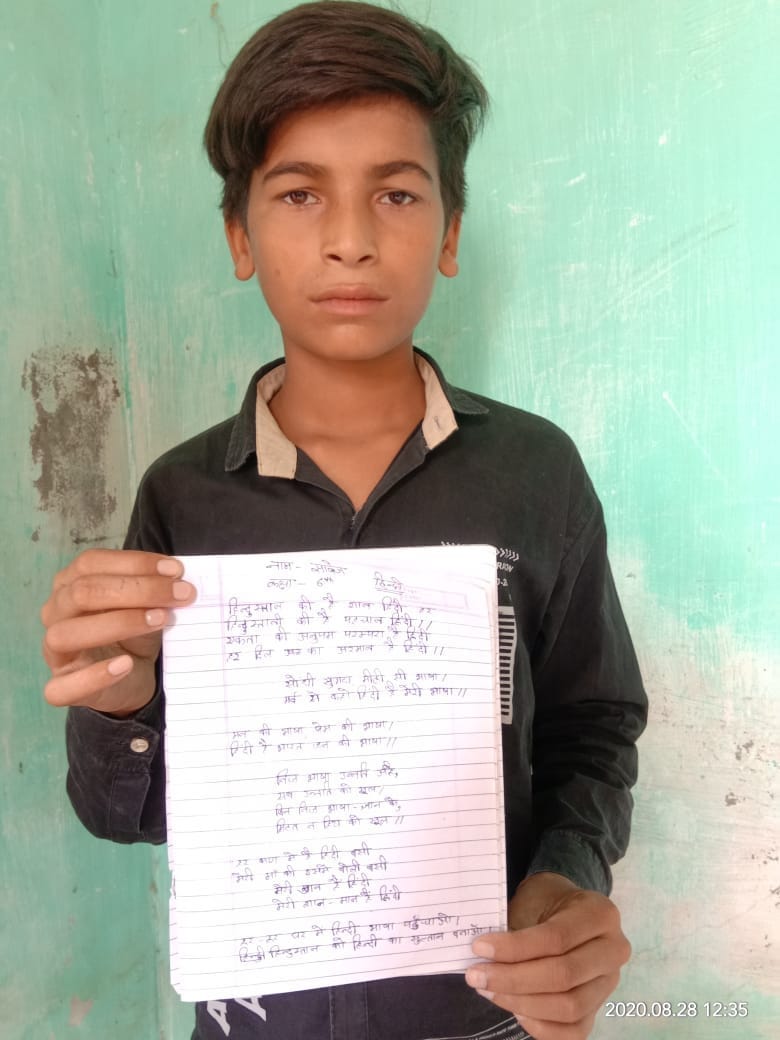 नाम - साहिल
कक्षा - 6th हिन्दी
हिन्दुस्तान की है शान हिंदी हर
हिन्दुस्तानी की है पहचान हिंदी //
एकता की अनुपम परम्परा है हिंदी
हर दिल का अरमान है हिंदी //
सीधी सुगम मीठी सी भाषा /
गर्व से कहो हिंदी है मेरी भाषा //
मन की भाषा प्रेम की भाषा /
हिंदी है भारत जन की भाषा //
निज भाषा उन्नति अहै,
सब उन्नति को मूल /
बिन निज भाषा - ज्ञान के,
मिटत न हिय को शूल //
हर कण में है हिंदी बसी
मेरी मां की इसमें बोली बसी
मेरी शान है हिंदी
मेरी मान है हिंदी
हर हर घर में हिन्दी भाषा पहुँचाओ /
हिन्दुस्तान को हिन्दी का सुल्तान बनाओ /
RION
J-2
2020.08.28 12:35